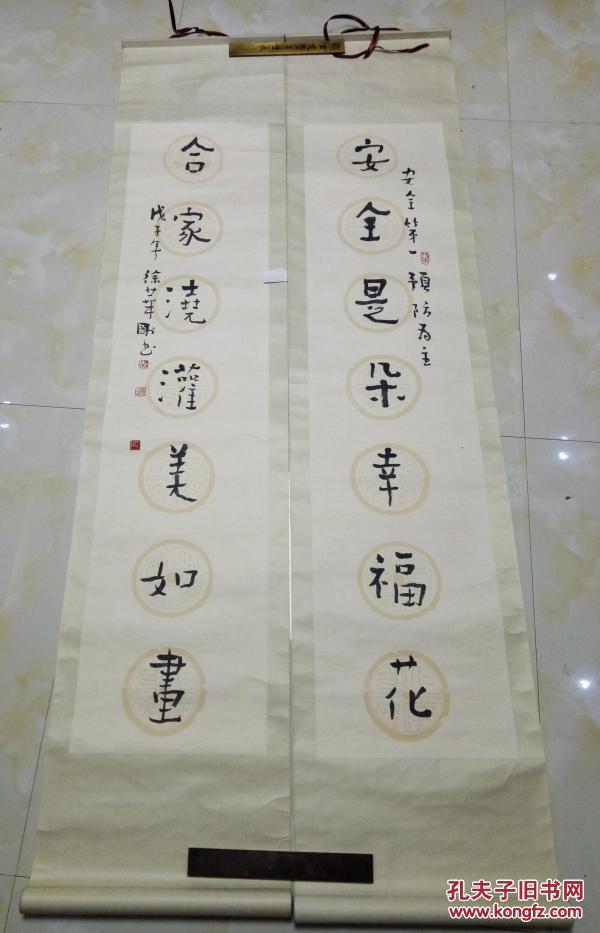 安全是朵幸福花
安全第一 预防为主
合家澆灌美如畫
戊子年 徐
书
孔夫子旧书网
www.kongfz.com